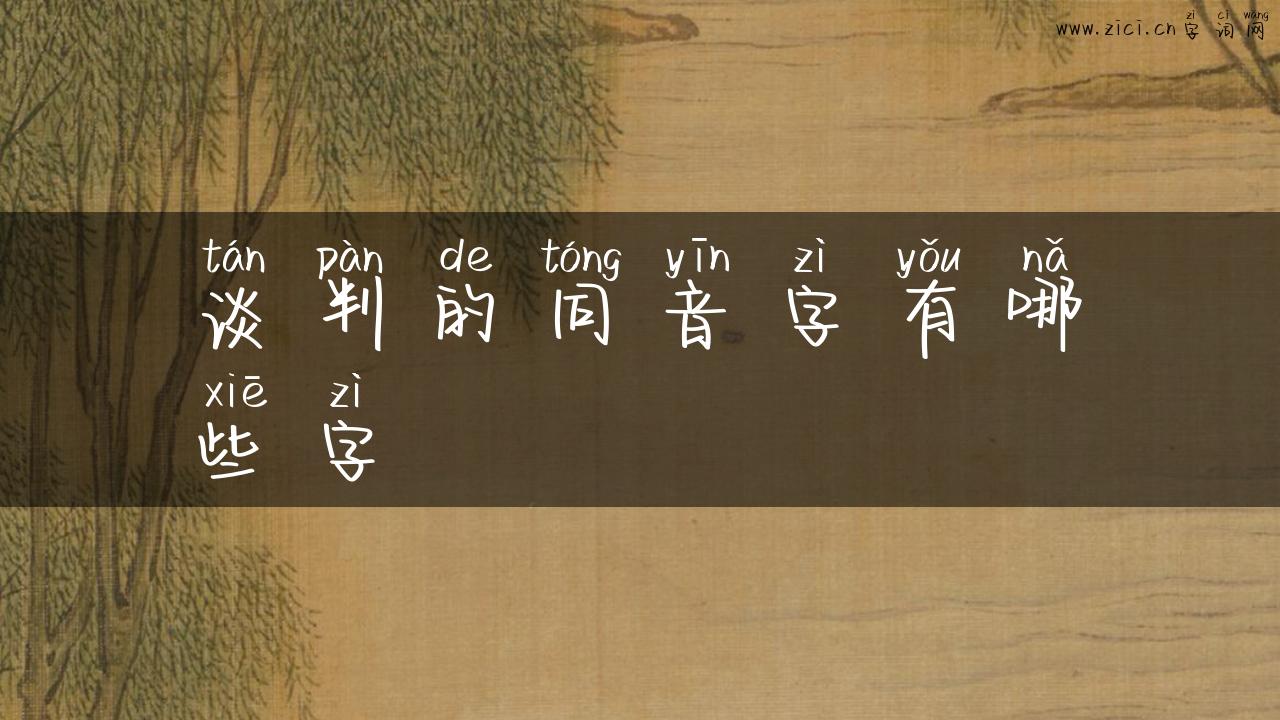 zì cí wǎng
www.zici.cn 字 词 网
tán pàn de tóng yīn zì yǒu nǎ
谈 判 的 同 音 字 有 哪
xiē zì
些 字